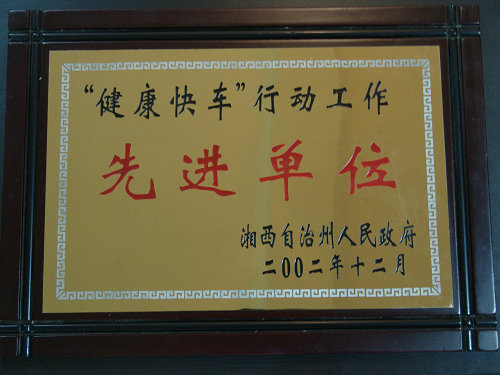 “健康快车”行动工作
先进单位
湘西自治州人民政府
二00二年十二月